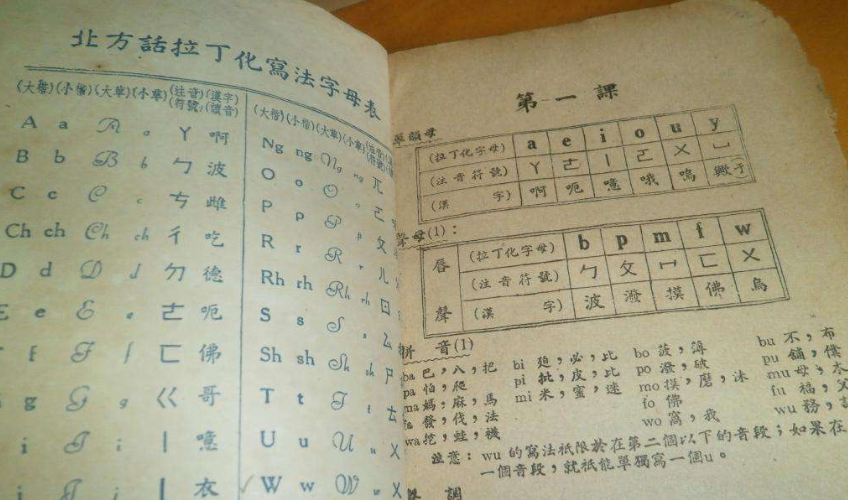 北方話拉丁化寫法字母表
(大楷)(小楷)(大草)(小草)(注音符號)(漢字讀音)
A a A a ㄚ 啊
B b B b ㄅ 波
C c C c ㄘ 雌
Ch ch Ch ch ㄔ 吃
D d D d ㄉ 德
E e E e ㄜ 呃
f F f ㄈ 佛
g G g ㄍ 哥
i I i 丨 噫
j I j 丨 衣
(大楷)(小楷)(大草)(小草)
Ng ng Ng ng 兀
O o O o ㄛ
P p P p ㄆ
R r R r ㄦ
Rh rh Rh rh ㄖ
S s S s ㄙ
Sh sh Sh sh ㄕ
T t T t ㄊ
U u U u ㄨ
W w W w ㄨ
第一課
單韻母
(拉丁化字母) a e i o u y
(注音符號) ㄚ ㄜ 丨 ㄛ ㄨ ㄩ
(漢字) 啊 呃 噫 哦 嗚
聲母(1):
唇聲
(拉丁化字母) b p m f w
(注音符號) ㄅ ㄆ ㄇ ㄈ ㄨ
(漢字) 波 潑 摸 佛 烏
拼音(1)
ba 巴,八,把 bi 逼,必,比 bo 菠,薄 bu 不,布
pa 怕,爬 pi 批,皮,比 po 潑,破 pu 鋪,僕
ma 媽,麻,馬 mi 米,蜜,迷 mo 摸,磨,沫 mu 母,木
fa 發,伐,法 fo 佛 fu 福,父
wa 挖,蛙,襪 wo 窩,我 wu 務,
注意:wu的寫法祇限於在第二個以下的音段;如果在
一個音段,就祇能單獨寫一個u。
調